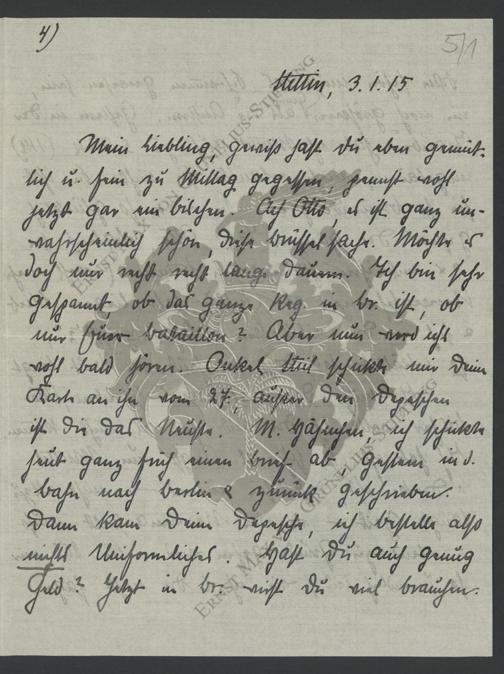 4)
5/1
Stettin, 3.1.15
Mein Liebling, gewiß hast Du eben gemüt-
lich u. fein zu Mittag gegessen, pennst wohl
jetzt gar ein bischen. Ach Otto es ist ganz un-
wahrscheinlich schön diese Brüsselsache. Möchte es
doch nur recht recht lange dauern. Ich bin sehr
gespannt, ob das ganze Reg. in Br. ist, ob
nur Euer Bataillon? Aber nun werd ichs
wohl bald hören. Onkel schickte mir Deine
Karte an ihn vom 27., außer den Depeschen
ist die das Neuste. M. Hähnchen, ich schickte
heut ganz früh einen Brief ab, gestern in d.
Bahn nach Berlin & zurück geschrieben.
Dann kam Deine Depesche, ich bestelle also
nichts Uniformliches. Hast Du auch genug
Geld? Jetzt in Br. wirst Du viel brauchen.
ERNST MAX VON GRUNELIUS-STIFTUNG
ERNST MAX VON GRUNELIUS-STIFTUNG